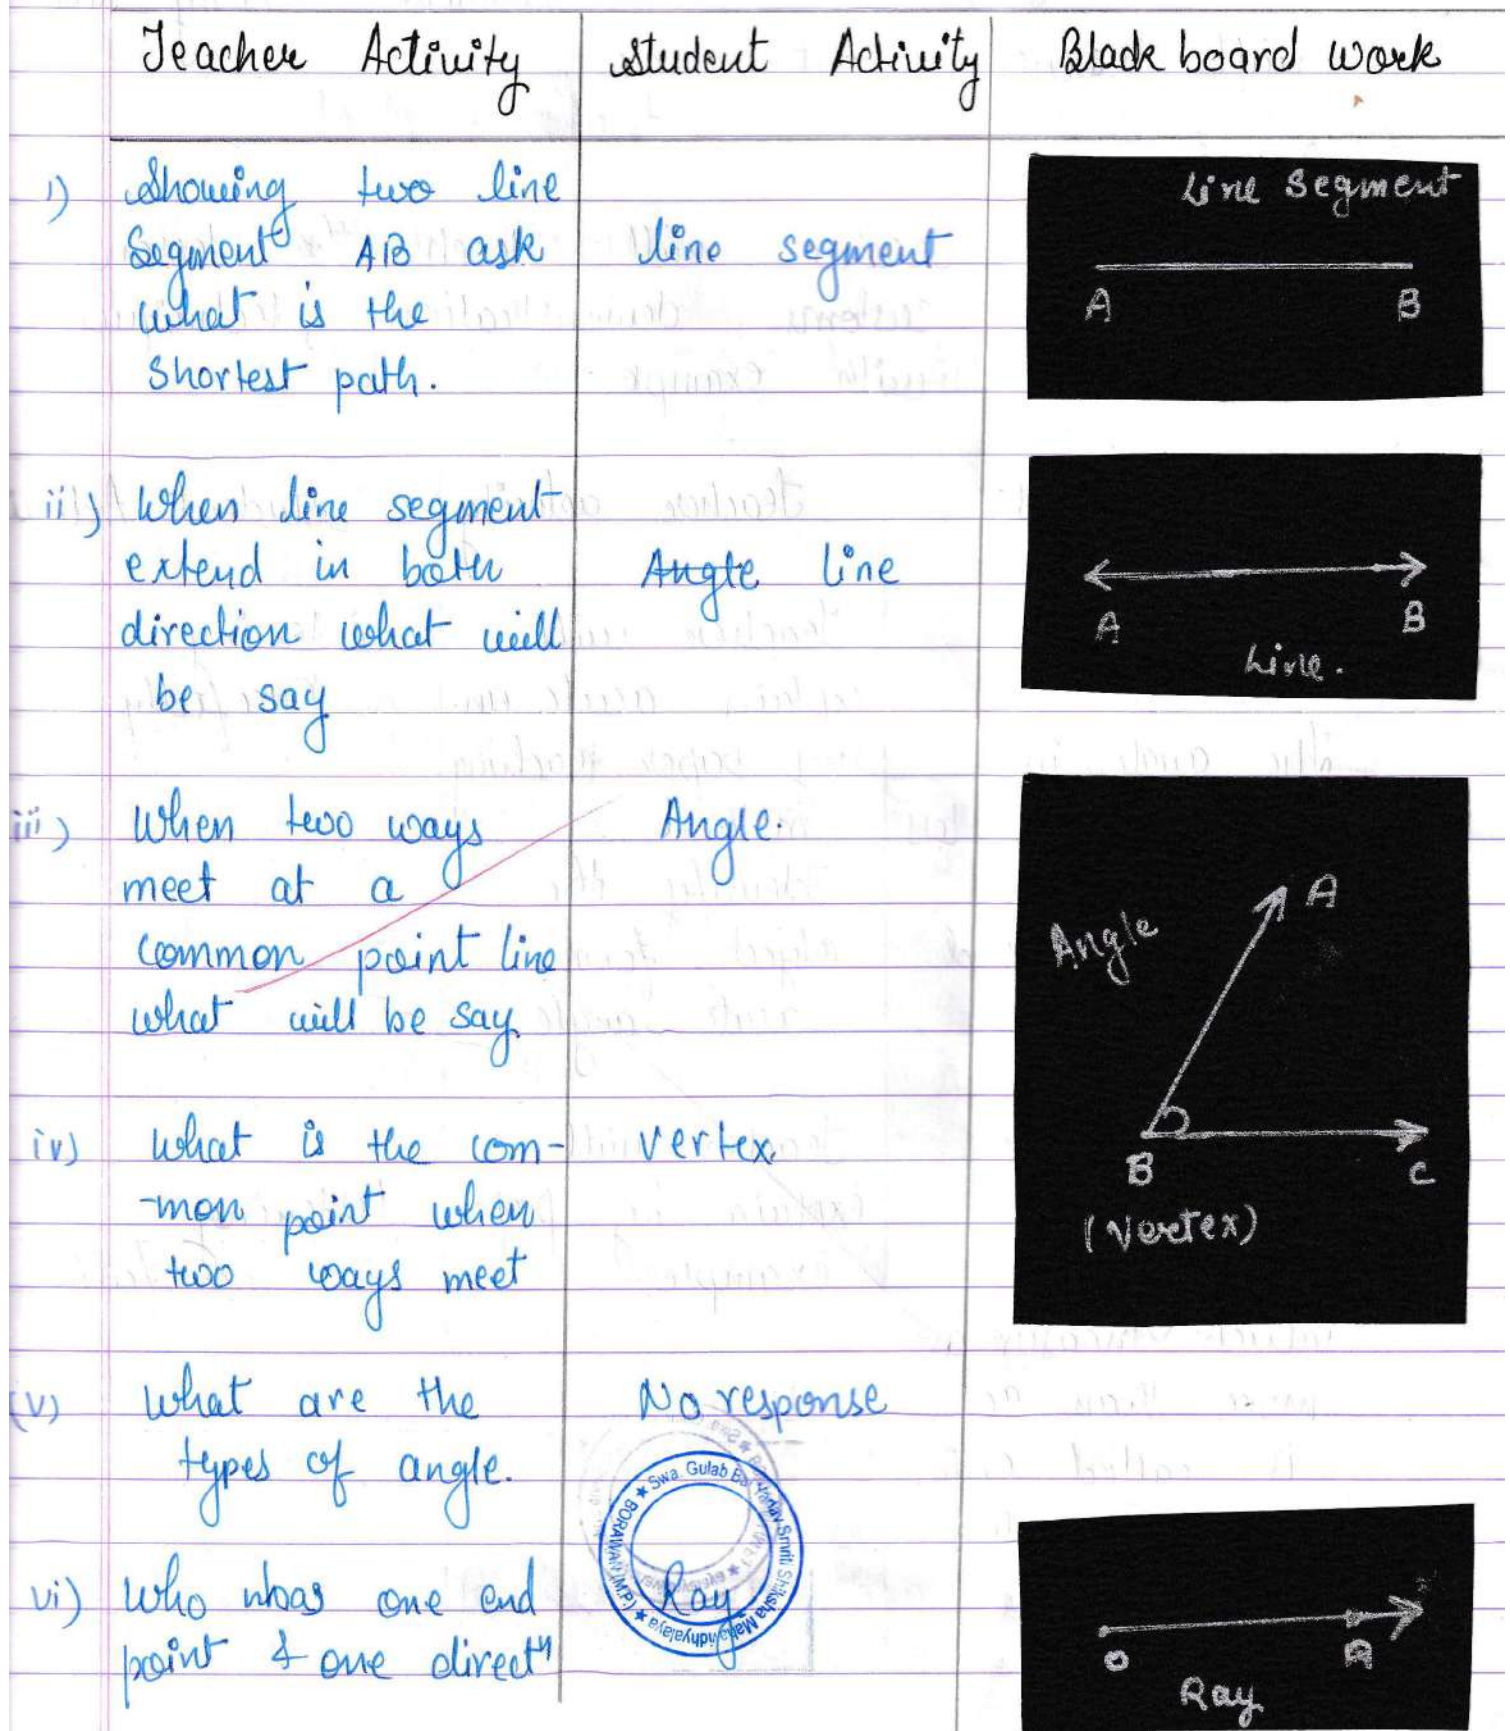 Teacher Activity Student Activity Black board work
i) Showing two line
Segment AB ask
what is the
shortest path.
line segment
Line Segment
A B
ii) When line segment
extend in both
direction what will
be say
Angle line
A B
Line.
iii) When two ways
meet at a
common point line
what will be say
Angle.
Angle
A
B C
(Vertex)
iv) What is the com-
-mon point when
two ways meet
Vertex.
(v) What are the
types of angle.
No response
Swa. Gulab Bai Yadav Smriti Shiksha Mahavidhyalaya
BORAWAN (M.P.)
vi) Who has one end
point & one directn
Ray
O A
Ray